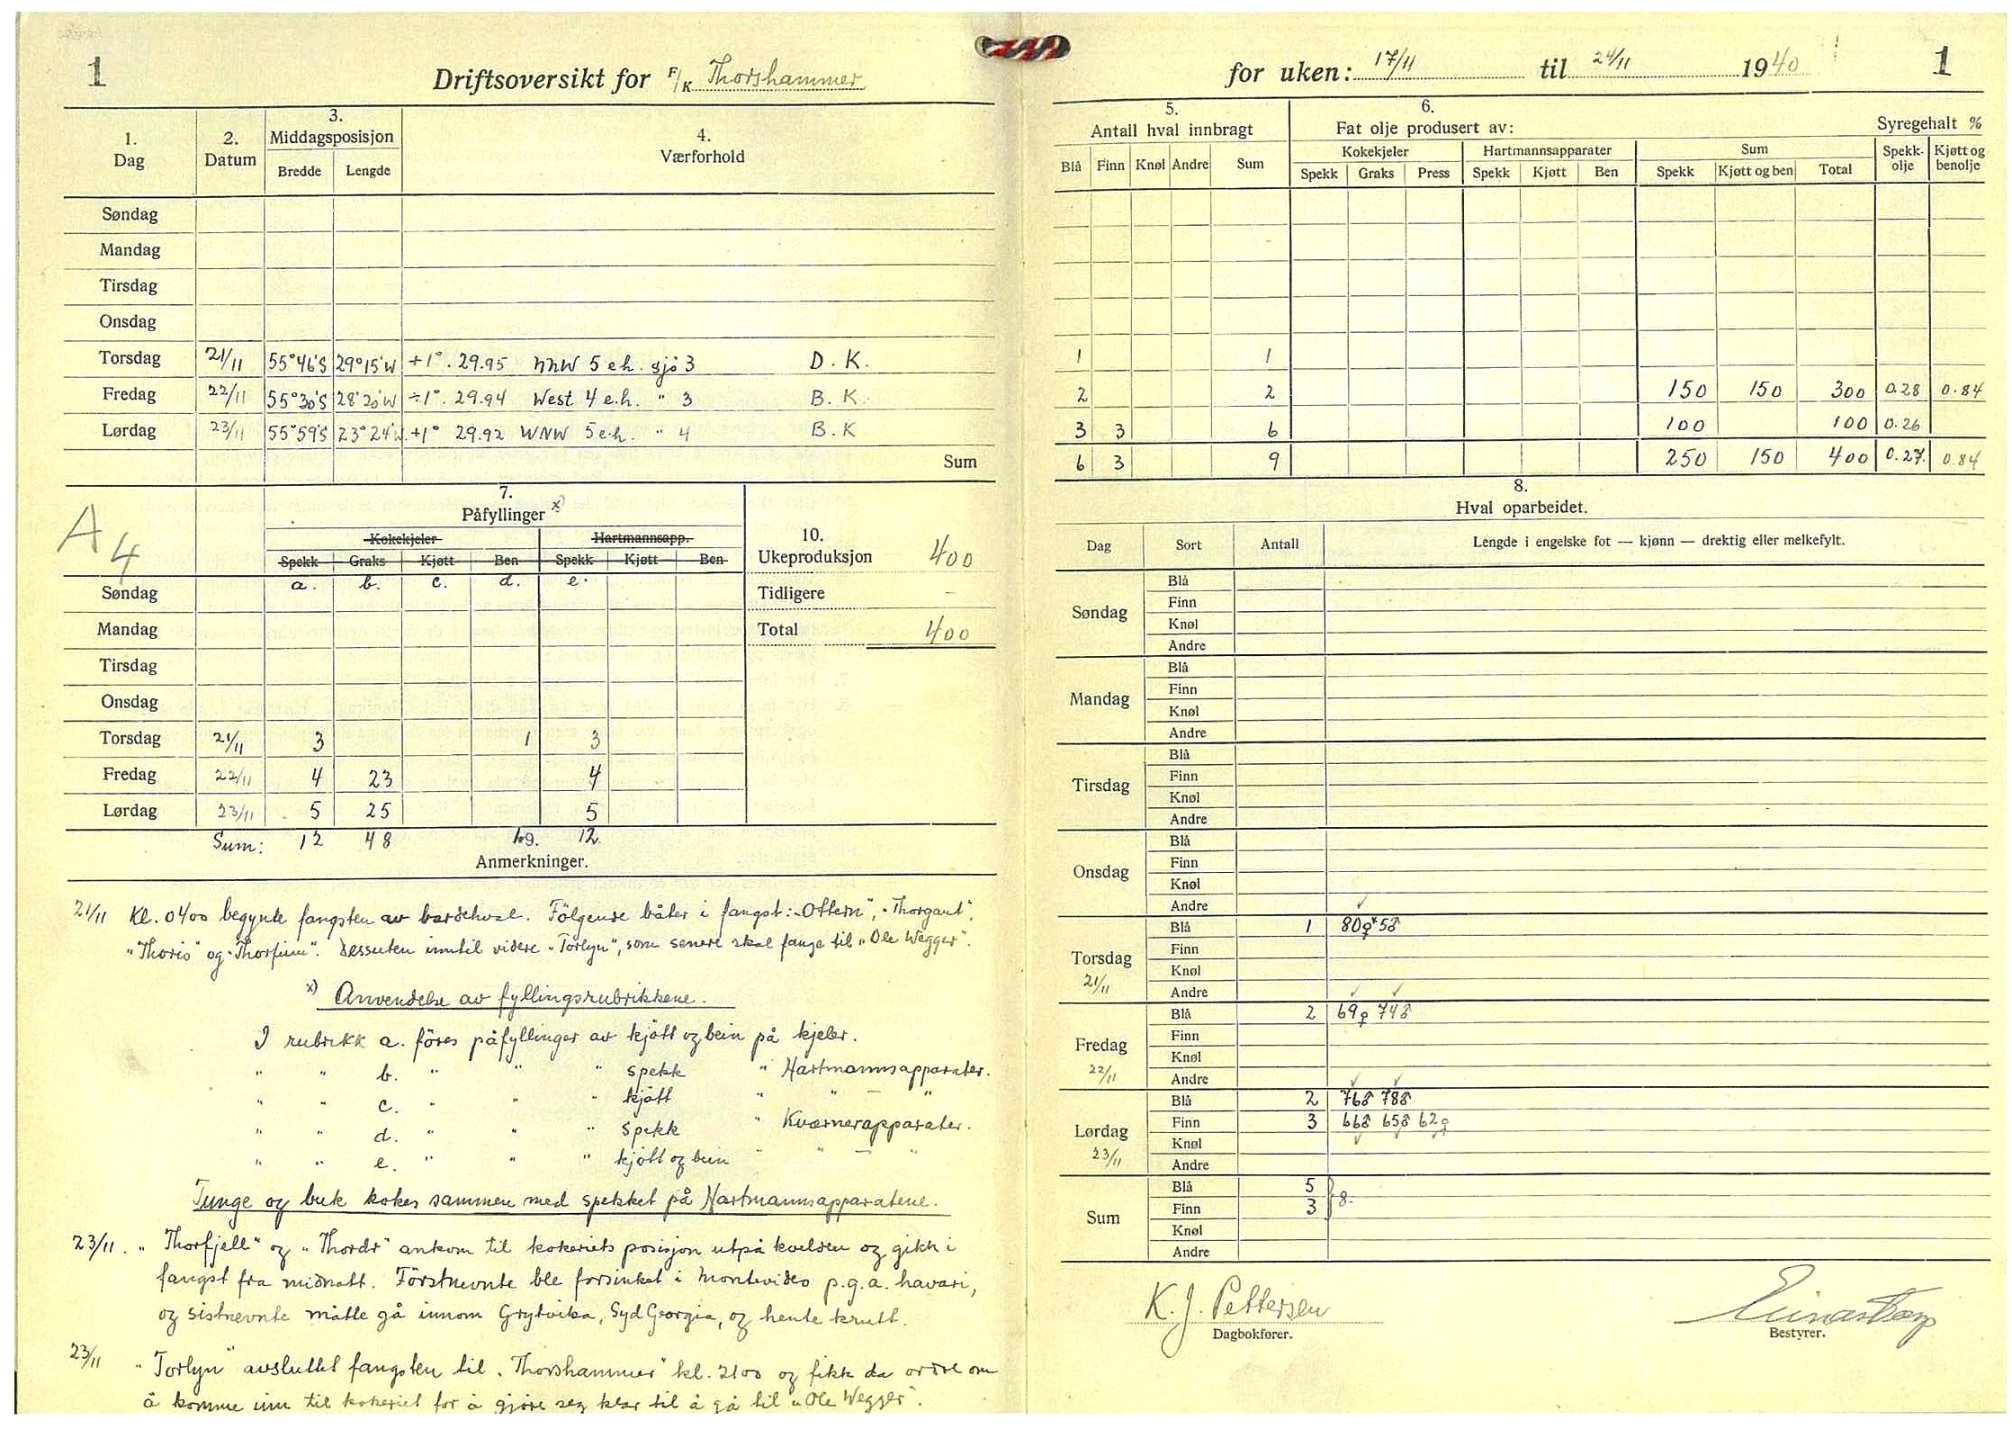 1
Driftsoversikt for F/K Thorshammer
1. Dag
2. Datum
3. Middagsposisjon
Bredde Lengde
4. Værforhold
Søndag
Mandag
Tirsdag
Onsdag
Torsdag 21/11 55°46'S 29°15'W +1°. 29.95 NNW 5 e.h. sjö 3 D. K.
Fredag 22/11 55°30'S 28°20'W ÷1°. 29.94 West 4 e.h. " 3 B. K.
Lørdag 23/11 55°59'S 23°24'W +1° 29.92 WNW 5 e.h. " 4 B. K
Sum
A4
7. Påfyllinger x)
Kokekjeler Hartmannsapp.
Spekk Graks Kjøtt Ben Spekk Kjøtt Ben
a. b. c. d. e.
Søndag
Mandag
Tirsdag
Onsdag
Torsdag 21/11 3 1 3
Fredag 22/11 4 23 4
Lørdag 23/11 5 25 5
Sum: 12 48 12
10.
Ukeproduksjon 400
Tidligere -
Total 400
Anmerkninger.
21/11 Kl. 0400 begynte fangsten av bardehval. Følgende båter i fangst: "Ottern", "Thorgaut",
"Thoris" og "Thorfinn". Dessuten inntil videre "Torlyn", som senere skal fange til "Ole Wegger".
x) Anvendelse av fyllingsrubrikkene.
I rubrikk a. föres påfyllinger av kjött og bein på kjeler.
" " b. " " " spekk " Hartmannsapparater.
" " c. " " " kjött " " — "
" " d. " " " spekk " Kværnerapparater.
" " e. " " " kjött og bein " " — "
Tunge og buk kokes sammen med spekket på Hartmannsapparatene.
23/11. "Thorfjell" og "Thordr" ankom til kokeriets posisjon utpå kvelden og gikk i
fangst fra midnatt. Förstnevnte ble forsinket i Montevideo p.g.a. havari,
og sistnevnte måtte gå innom Grytvika, Syd Georgia, og hente krutt.
23/11 "Torlyn" avsluttet fangsten til "Thorshammer" kl. 2100 og fikk da ordre om
å komme inn til kokeriet for å gjöre seg klar til å gå til "Ole Wegger".
for uken: 17/11 til 24/11 1940 1
5. Antall hval innbragt
Blå Finn Knøl Andre Sum
6. Fat olje produsert av:
Kokekjeler Hartmannsapparater Sum
Spekk Graks Press Spekk Kjøtt Ben Spekk Kjøtt og ben Total
Syregehalt %
Spekk-olje Kjøtt og benolje
1 1
2 2 150 150 300 0.28 0.84
3 3 6 100 100 0.26
6 3 9 250 150 400 0.27 0.84
8.
Hval oparbeidet.
Dag Sort Antall Lengde i engelske fot — kjønn — drektig eller melkefylt.
Søndag
Blå
Finn
Knøl
Andre
Mandag
Blå
Finn
Knøl
Andre
Tirsdag
Blå
Finn
Knøl
Andre
Onsdag
Blå
Finn
Knøl
Andre
Torsdag 21/11
Blå 1 80♀
Finn
Knøl
Andre
Fredag 22/11
Blå 2 69♀ 74♂
Finn
Knøl
Andre
Lørdag 23/11
Blå 2 76♂ 78♂
Finn 3 66♂ 65♂ 62♀
Knøl
Andre
Sum
Blå 5
Finn 3 } 8.
Knøl
Andre
K. J. Pettersen
Dagbokfører.
Bestyrer.